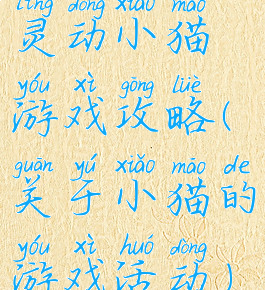 líng dòng xiǎo māo
灵动小猫
yóu xì gōng lüè
游戏攻略(
guān yú xiǎo māo de
关于小猫的
yóu xì huó dòng
游戏活动)